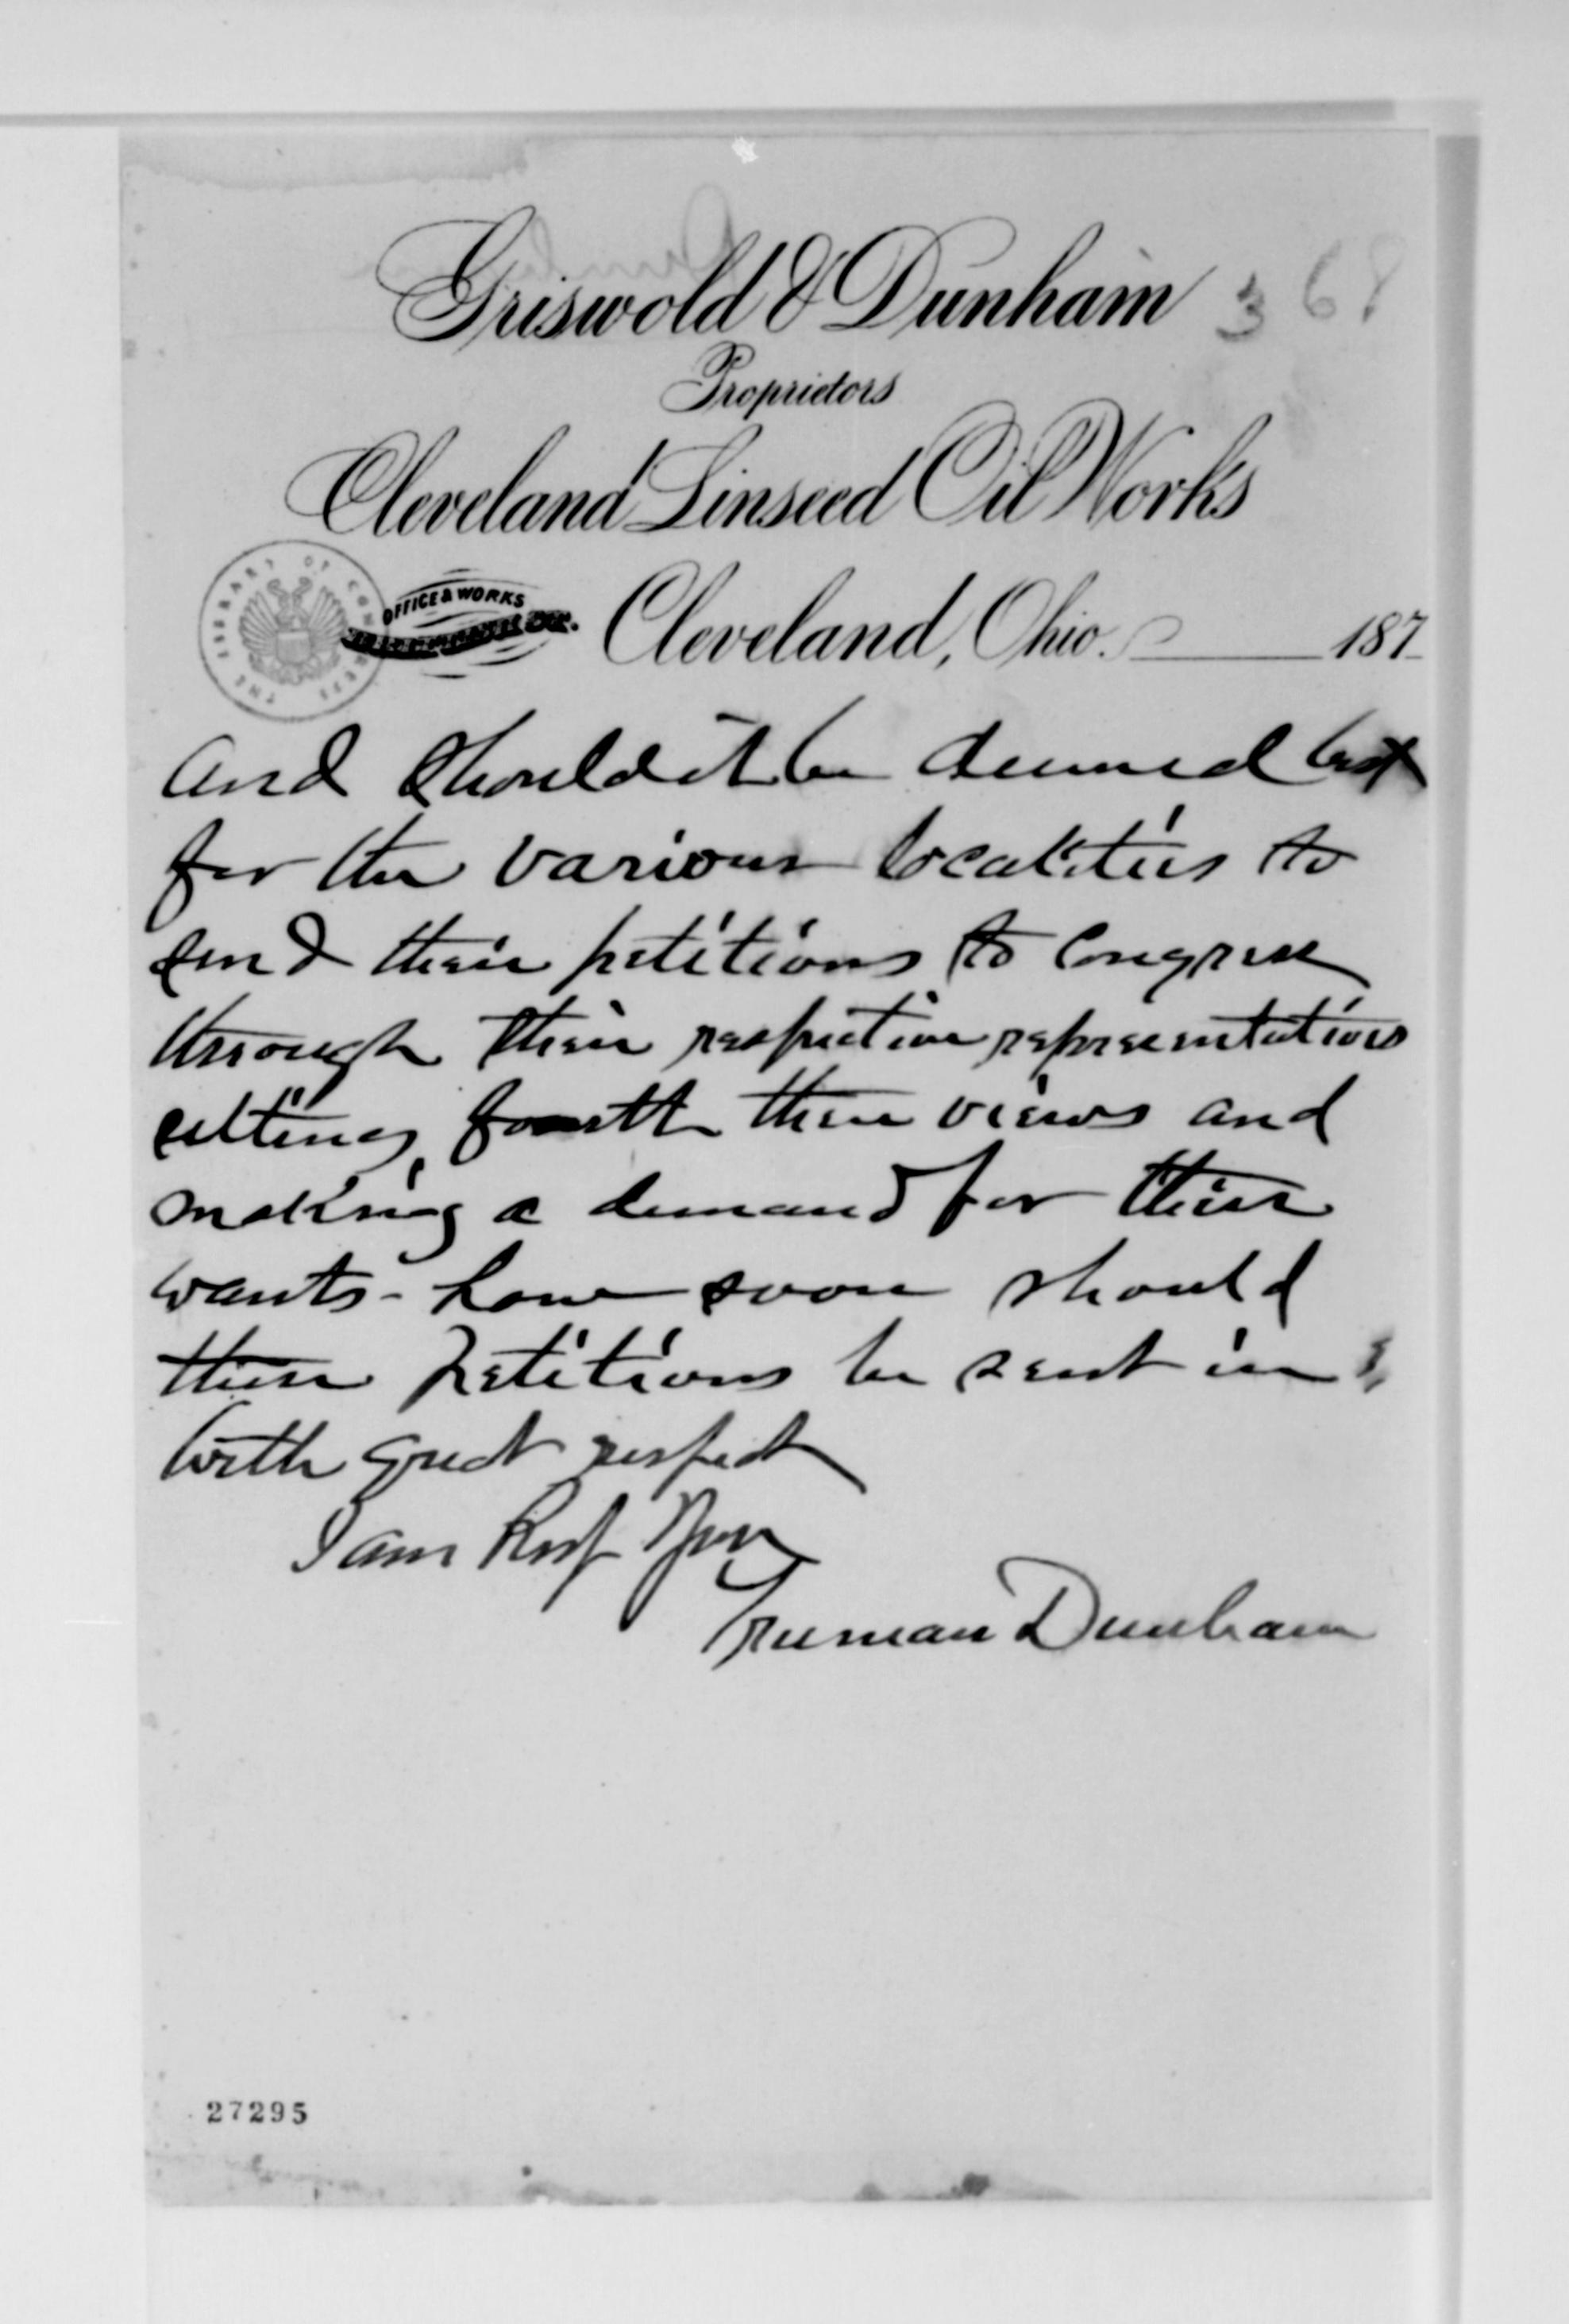 368
Griswold & Dunham
Proprietors
Cleveland Linseed Oil Works
THE LIBRARY OF CONGRESS
OFFICE & WORKS
Cleveland, Ohio. 187
and should it be deemed best
for the various localities to
send their petitions to Congress
through their respective representatives
setting foarth their views and
making a demand for their
wants - how soon should
these petitions be sent in?
With great respect
I am Resp Your
Truman Dunham
27295